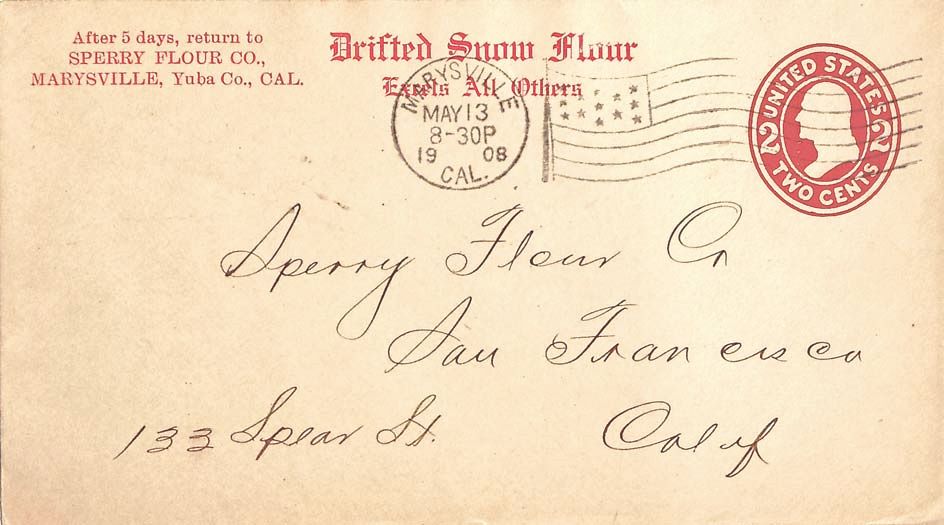 After 5 days, return to
SPERRY FLOUR CO.,
MARYSVILLE, Yuba Co., CAL.
Drifted Snow Flour
Excels All Others
MARYSVILLE
MAY 13
8-30P
19 08
CAL.
UNITED STATES
2 2
TWO CENTS
Sperry Flour Co
San Francisco
133 Spear St. Calif